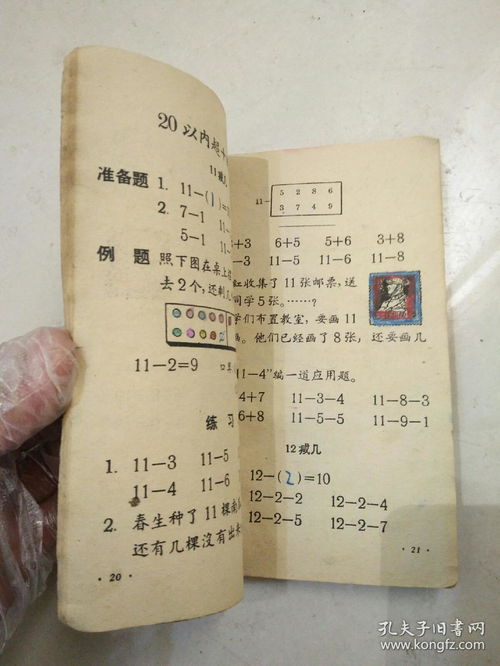 20以内超十
11减几
准备题 1. 11-(1)=
2. 7-1 11-
5-1 11-
例 题 照下图在桌上
去2个,还剩几
11-2=9 口
练 习
1. 11-3 11-5
11-4 11-6
2. 春生种了11棵南
还有几棵没有出来
· 20 ·
11-
5 2 8 6
3 7 4 9
+3 6+5 5+6 3+8
-3 11-5 11-6 11-8
红收集了11张邮票,送
同学5张。……?
学们布置教室,要画11
画。他们已经画了8张,还要画几
“11-4”编一道应用题。
4+7 11-3-4 11-8-3
6+8 11-5-5 11-9-1
12减几
12-(2)=10
12-2-2 12-2-4
12-2-5 12-2-7
· 21 ·
孔夫子旧书网
www.kongfz.com